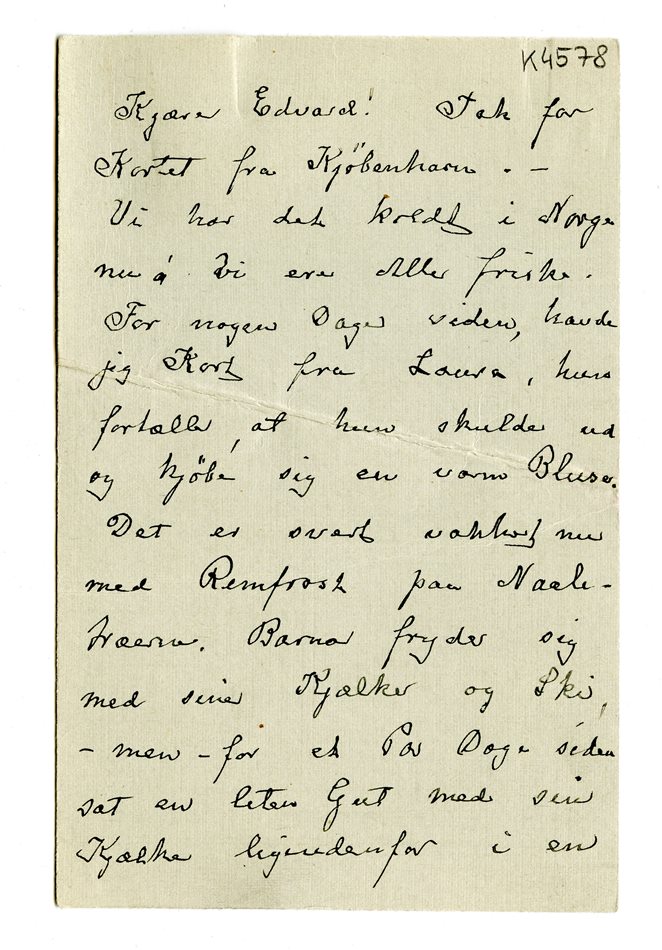 K4578
Kjære Edvard! Tak for
Kortet fra Kjöbenhavn. –
Vi har det koldt i Norge
nu á Vi ere Alle friske.
For nogen Dage siden, havde
jeg Kort fra Laura, hun
fortæller, at hun skulde ud
og kjöbe sig en varm Bluse.
Det er svert vakkert nu
med Remfrost paa Naale-
træerne. Barna fryder sig
med sine Kjælker og Ski,
– men – for et Par Dage siden
sat en liten Gut med sin
Kjælke ligeudenfor i en